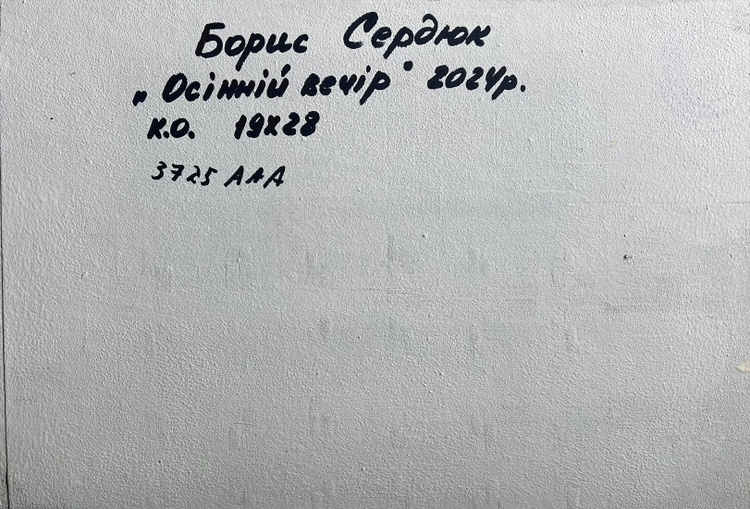 Борис Сердюк
„Осінній вечір" 2024р.
К.О. 19х28
3725 ААА